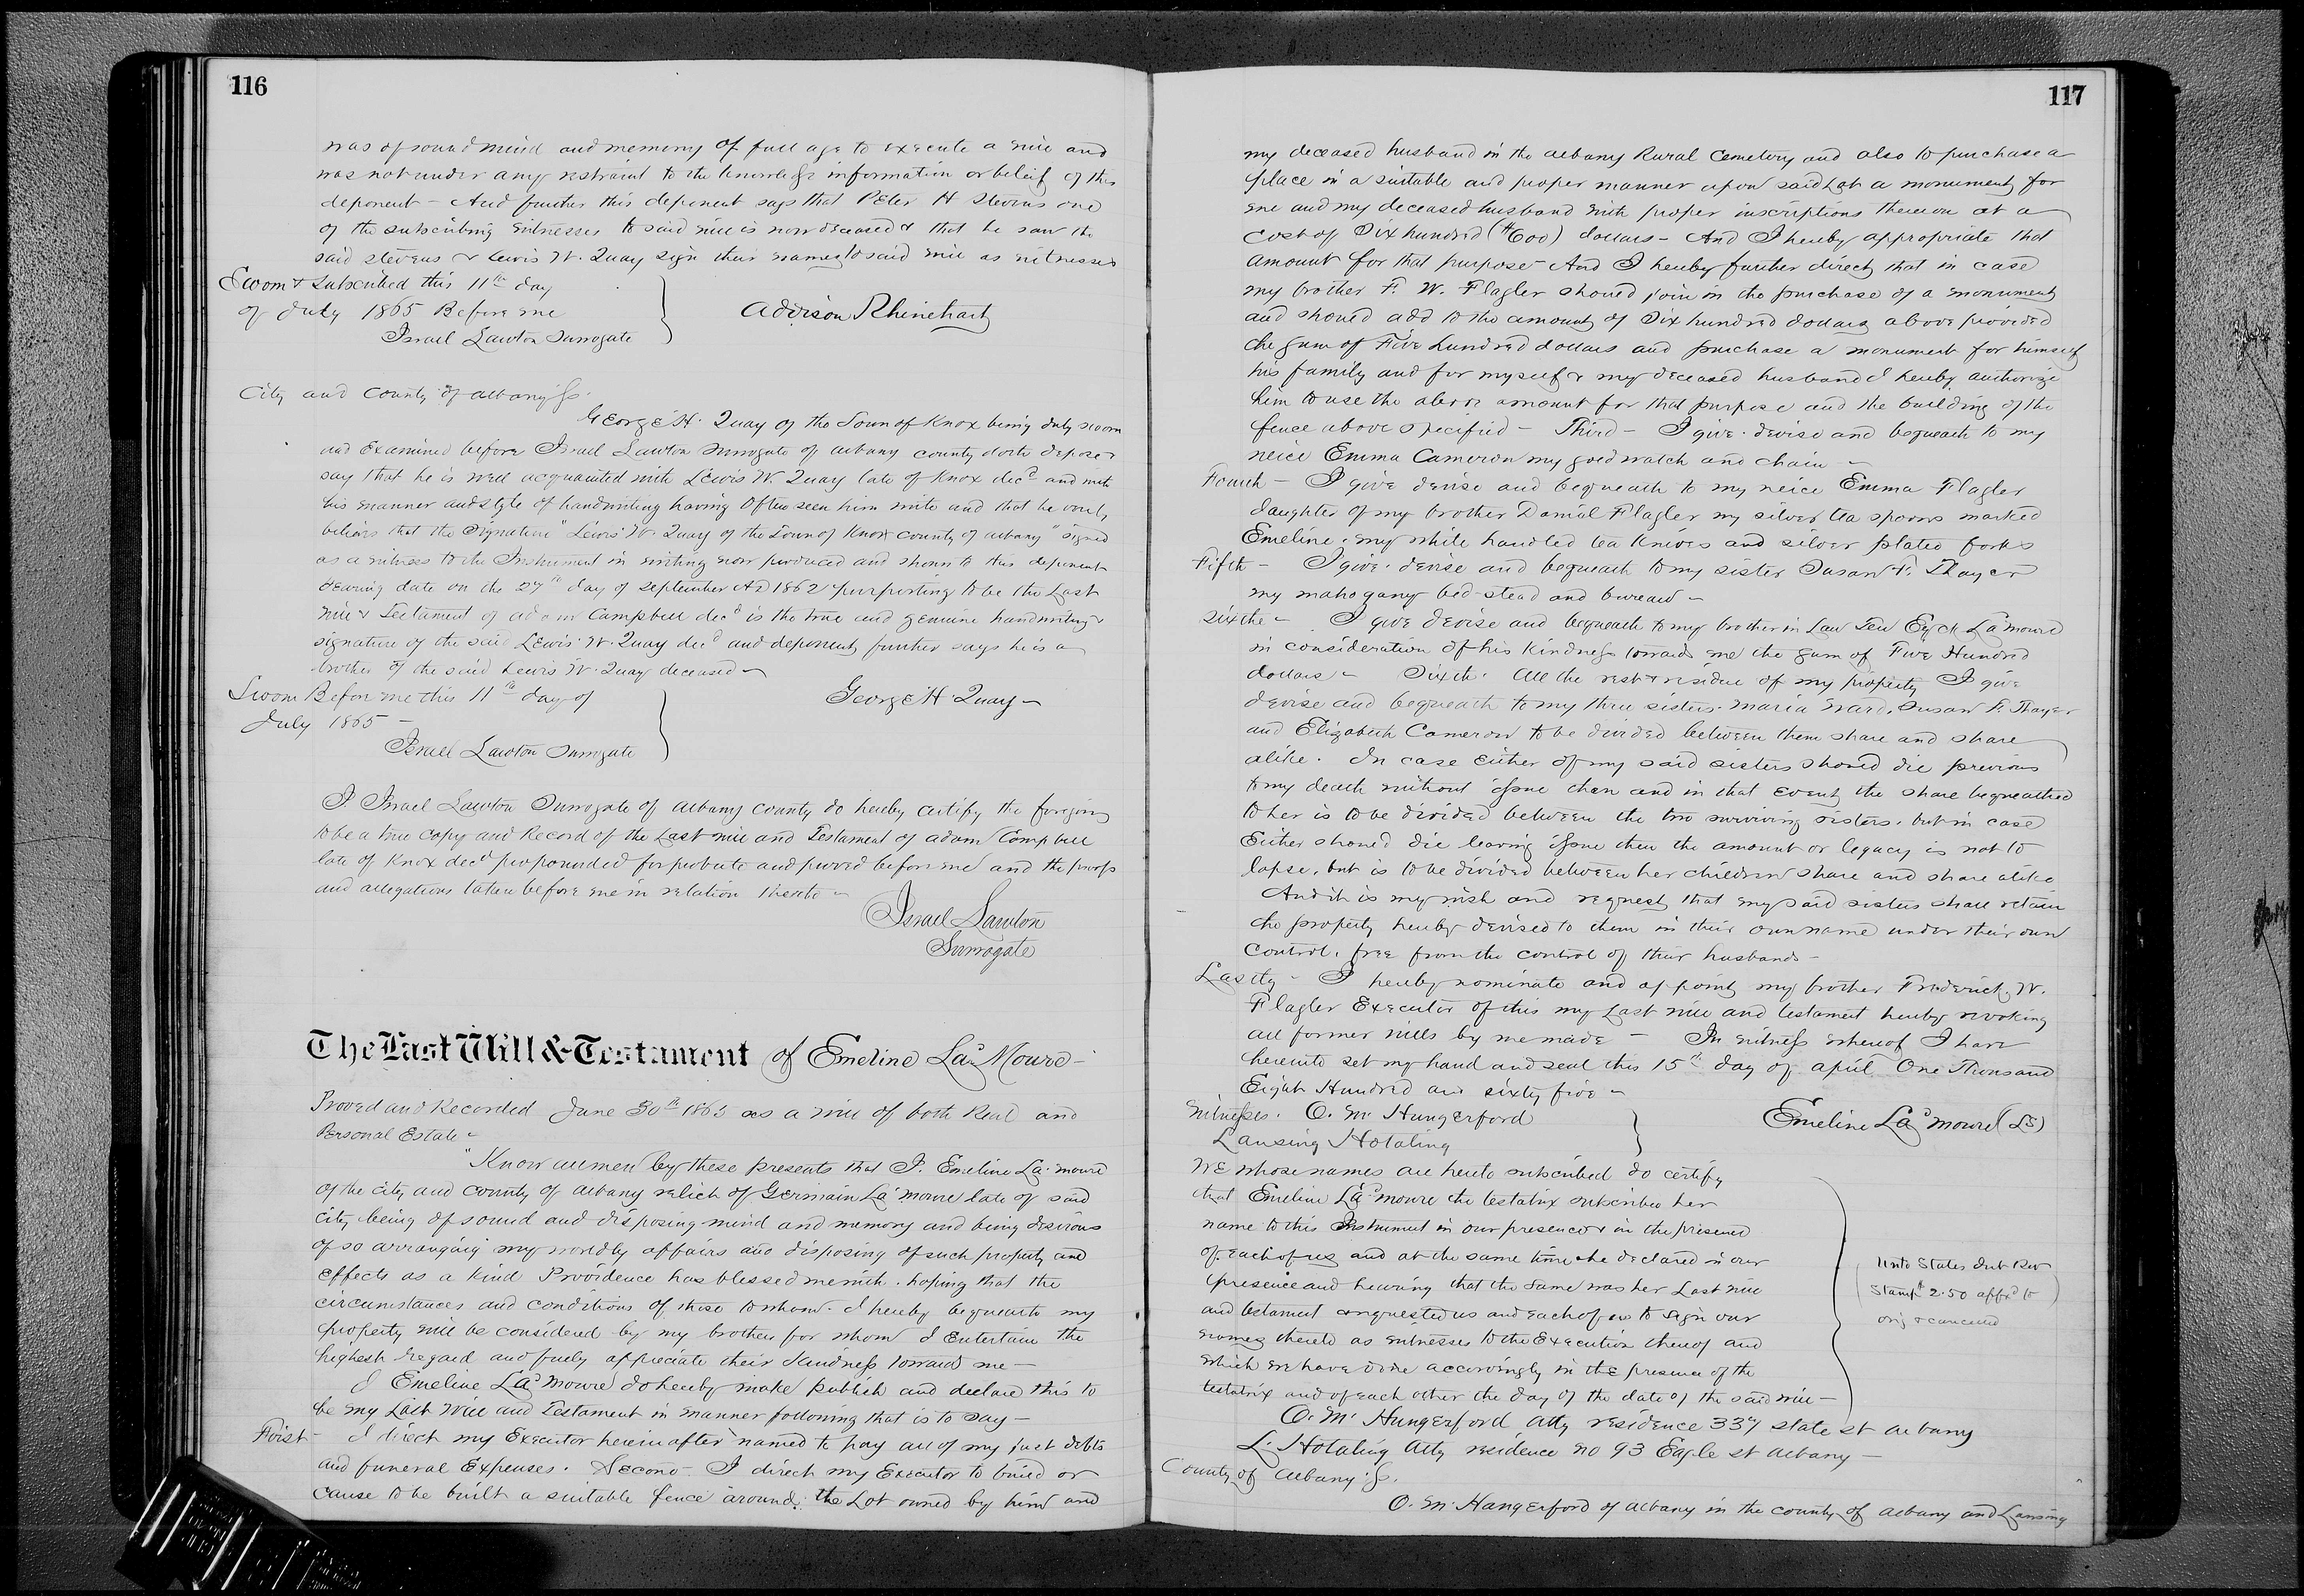 116
was of sound mind and memory of full age to execute a will and
was not under any restraint to the knowledge information or beleif of this
deponent – And further this deponent says that Peter H Stevens one
of the subscribing witnesses to said will is now deceased & that he saw the
said Stevens & Lewis W. Quay sign their names to said will as witnesses
Sworn & Subscribed this 11th day
of July 1865 Before me
Israel Lawton Surrogate
Addison Rhinehart
City and County of Albany ss.
George H. Quay of the Town of Knox being duly sworn
and Examined before Israel Lawton Surrogate of Albany County doth depose &
say that he is well acquainted with Lewis W. Quay late of Knox decd and with
his manner and style of handwriting having Often seen him write and that he verily
believes that the Signature "Lewis W. Quay of the Town of Knox county of Albany" signed
as a witness to the Instrument in writing now produced and shown to this deponent
bearing date on the 27th day of September AD 1862 purporting to be the Last
Will & Testament of Adam Campbell decd is the true and genuine handwriting &
signature of the said Lewis W. Quay decd and deponent further says he is a
brother of the said Lewis W. Quay deceased –
Sworn Before me this 11th day of
July 1865 –
Israel Lawton Surrogate
George H Quay –
I. Israel Lawton Surrogate of Albany County do hereby certify the foregoing
to be a true copy and Record of the Last will and Testament of Adam Campbell
late of Knox decd propounded for probate and proved before me and the proofs
and allegations taken before me in relation thereto –
Israel Lawton
Surrogate
The Last Will & Testament of Emeline La Moure –
Proved and Recorded June 30th 1865 as a will of both Real and
Personal Estate –
"Know all men by these presents that I. Emeline La moure
of the City and County of Albany relict of Germain La moure late of said
City being of sound and disposing mind and memory and being desirous
of so arranging my worldly affairs and disposing of such property and
effects as a kind Providence has blessed me with. hoping that the
circumstances and conditions of those to whom I hereby bequeath my
property will be considered by my brothers for whom I Entertain the
highest regard and fully appreciate their kindness towards me –
I Emeline La moure do hereby make publish and declare this to
be my Last Will and Testament in manner following that is to say –
First – I direct my Executor hereinafter named to pay all of my just debts
and funeral Expenses. Second – I direct my Executor to build or
cause to be built a suitable fence around the Lot owned by him and
117
my deceased husband in the Albany Rural Cemetery and also to purchase &
place in a suitable and proper manner upon said Lot a monument for
me and my deceased husband with proper inscriptions thereon at a
cost of Six hundred ($600) dollars – And I hereby appropriate that
amount for that purpose – And I hereby further direct that in case
my brother F. W. Flagler should join in the purchase of a monument
and should add to the amount of Six hundred dollars above provided
the sum of Five hundred dollars and purchase a monument for himself
his family and for myself & my deceased husband I hereby authorize
him to use the above amount for that purpose and the building of the
fence above specified – Third – I give. devise and bequeath to my
neice Emma Cameron my gold watch and chain –
Fourth – I give devise and bequeath to my neice Emma Flagler
daughter of my brother Danial Flagler my silver tea spoons marked
Emeline, my white handled tea Knives and silver plated forks
Fifth – I give. devise and bequeath to my sister Susan F. Thayer
my mahogany bed-stead and bureau –
Sixthe – I give devise and bequeath to my brother in Law Ten Eyck La moure
in consideration of his kindness towards me the sum of Five Hundred
dollars – Sixth. All the rest & residue of my property I give
devise and bequeath to my three sisters. Maria Ward, Susan F. Thayer
and Elizabeth Cameron to be divided between them share and share
alike. In case either of my said sisters should die previous
to my death without issue then and in that event the share bequeathed
to her is to be divided between the two surviving sisters. but in case
Either should die leaving issue then the amount or legacy is not to
lapse, but is to be divided between her children share and share alike
And it is my wish and request that my said sisters shall retain
the property hereby devised to them in their own name under their own
control, free from the control of their husbands –
Lastly – I hereby nominate and appoint my brother Frederick. W.
Flagler Executor of this my Last will and testament hereby revoking
all former wills by me made – In witness whereof I have
hereunto set my hand and seal this 15th day of April One Thousand
Eight Hundred and sixty five –
Witnesses. O. M. Hungerford
Lansing Hotaling
Emeline La moure (LS)
We whose names are hereto subscribed do certify
that Emeline La moure the testatrix subscribed her
name to this Instrument in our presence & in the presence
of each of us and at the same time she declared in our
presence and hearing that the same was her Last will
and testament & requested us and each of us to sign our
names thereto as witnesses to the Execution thereof and
which we have done accordingly in the presence of the
testatrix and of each other the day of the date of the said will –
Unitd States Int Rev
Stamp $2.50 affxd to
orig & cancelled
O. M. Hungerford Atty residence 337 State st Albany
L. Hotaling Atty residence no 93 Eagle st Albany –
County of Albany ss.
O. M. Hungerford of Albany in the county of Albany and Lansing